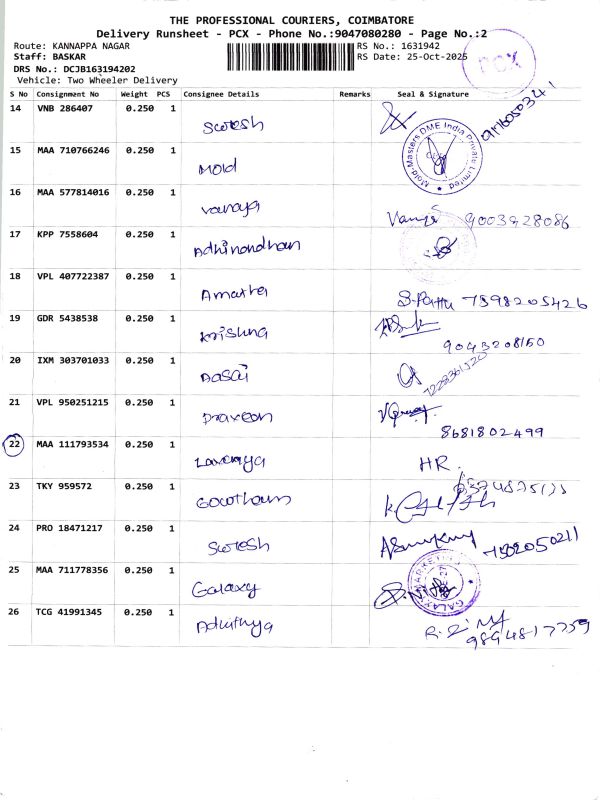 THE PROFESSIONAL COURIERS, COIMBATORE
Delivery Runsheet - PCX - Phone No.:9047080280 - Page No.:2
Route: KANNAPPA NAGAR
RS No.: 1631942
Staff: BASKAR
RS Date: 25-Oct-2025
PCX
DRS No.: DCJB163194202
Vehicle: Two Wheeler Delivery
S No Consignment No Weight PCS Consignee Details Remarks Seal & Signature
14 VNB 286407 0.250 1 Suresh
15 MAA 710766246 0.250 1 Mold
Mold-Masters DME India Private Limited
16 MAA 577814016 0.250 1 9003928086
17 KPP 7558604 0.250 1 Adhinandhan
18 VPL 407722387 0.250 1 Amatha 7598205426
19 GDR 5438538 0.250 1 Krishna
9043208150
20 IXM 303701033 0.250 1 Aasai
21 VPL 950251215 0.250 1 Praveen
8681802499
22 MAA 111793534 0.250 1 Lavanya HR.
23 TKY 959572 0.250 1 Gowtham
24 PRO 18471217 0.250 1 Suresh
25 MAA 711778356 0.250 1 Galaxy
26 TCG 41991345 0.250 1 Adhithya